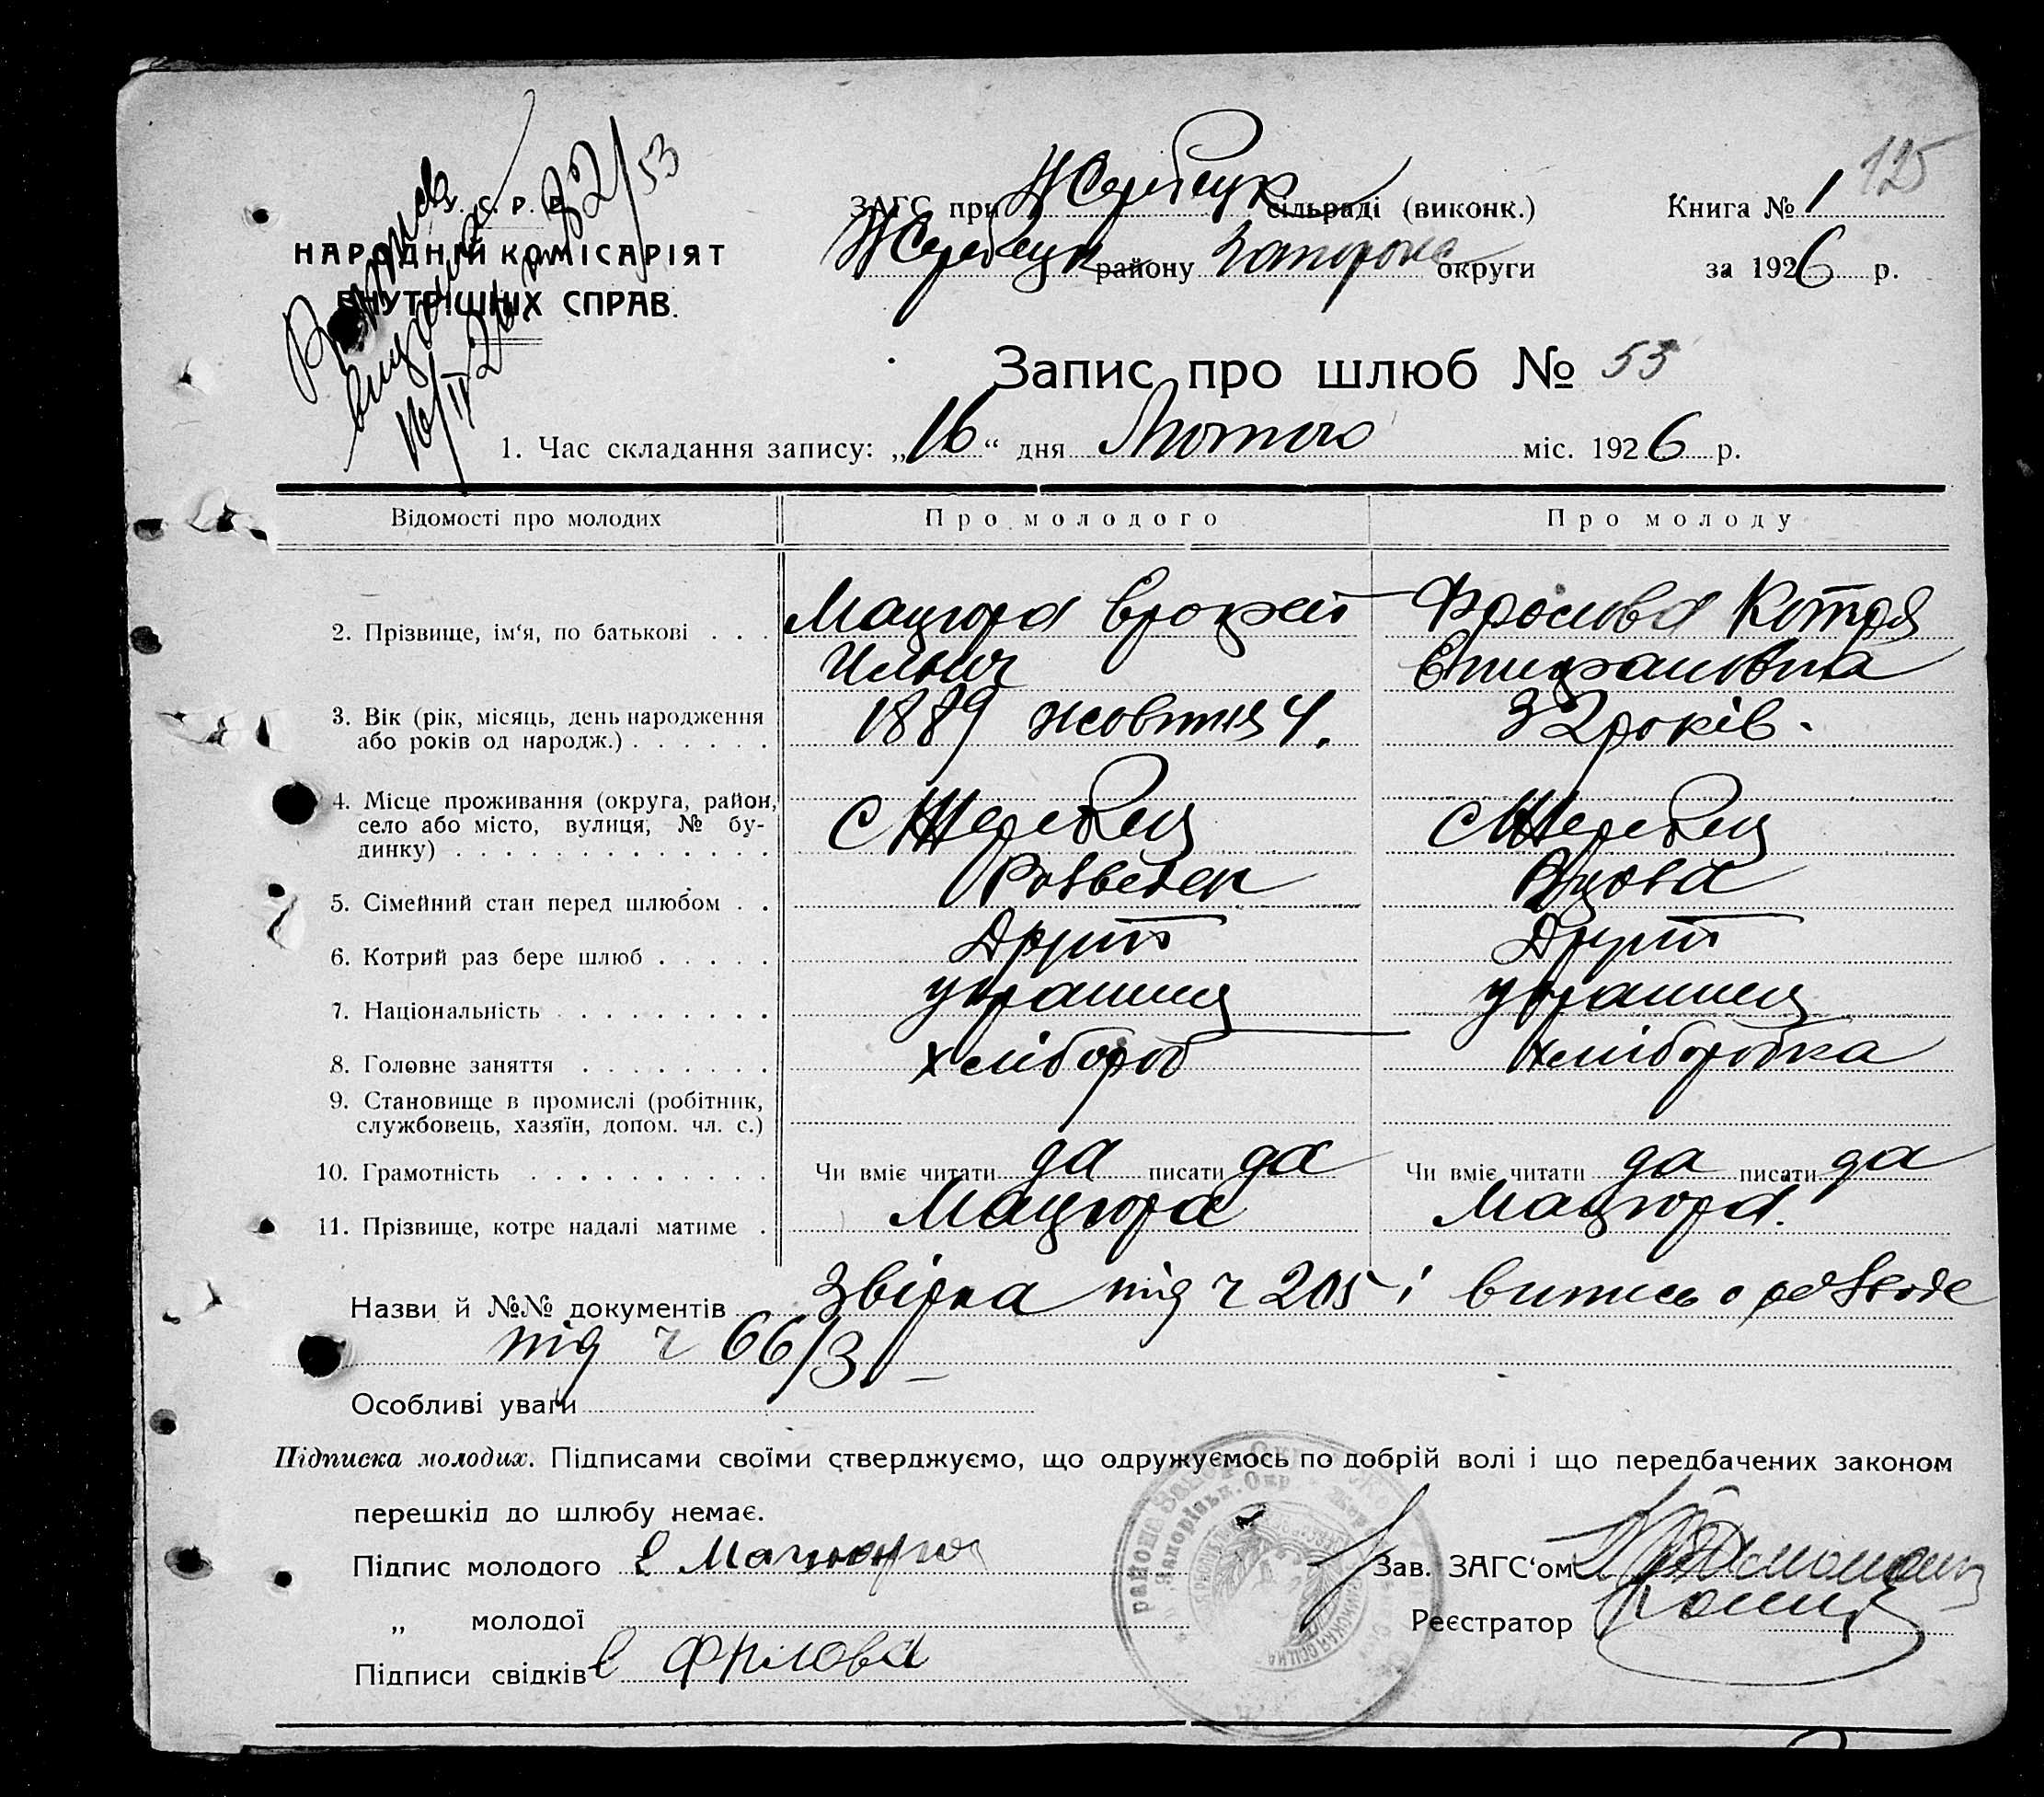 125
У. С. Р. Р.
НАРОДНІЙ КОМІСАРІЯТ
ВНУТРІШНІХ СПРАВ.
Виписка
видана
16/II 26 р. 82/53
ЗАГС при Жеребецк сільраді (виконк.) Книга № 1
Жеребецк району Запорожс округи за 1926 р.
Запис про шлюб № 53
1. Час складання запису: „16“ дня Лютого міс. 1926 р.
Відомості про молодих Про молодого Про молоду
2. Прізвище, ім‘я, по батькові . . . Мацюра Єрофей Фролова Котря
Ильич Єпифановна
3. Вік (рік, місяць, день народження 1889 жовтня 4. 32 років.
або років од народж.) . . . . . .
4. Місце проживання (округа, район,
село або місто, вулиця, № бу- с Жеребец с Жеребец
динку) . . . . . . . . . . . . .
5. Сімейний стан перед шлюбом . . Розведен Вдова
6. Котрий раз бере шлюб . . . . . Другий Другий
7. Національність . . . . . . . . . украинец украинец
8. Головне заняття . . . . . . . . хлібороб хліборобка
9. Становище в промислі (робітник,
службовець, хазяїн, допом. чл. с.)
10. Грамотність . . . . . . . . . . Чи вміє читати да писати да Чи вміє читати да писати да
11. Прізвище, котре надалі матиме . Мацюра Мацюра.
Назви й №№ документів Звірка під ч 205 і випись о розводе
під ч 66/3
Особливі уваги
Підписка молодих. Підписами своїми стверджуємо, що одружуємось по добрій волі і що передбачених законом
перешкід до шлюбу немає.
Підпис молодого Є Мацюра
Зав. ЗАГС‘ом
„ молодої
Реєстратор
Підписи свідків Є Фрлова